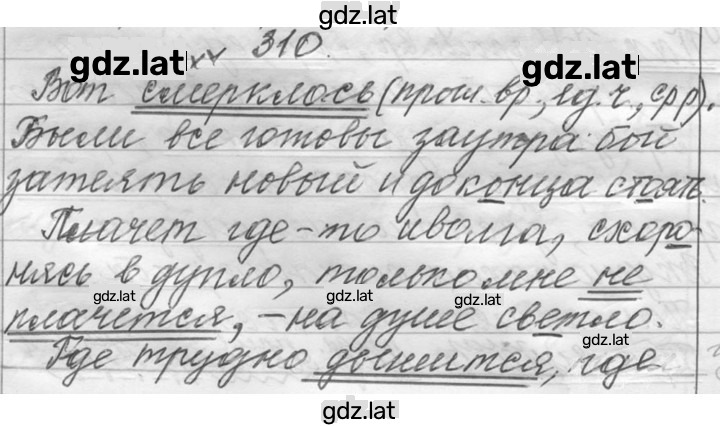 gdz.lat
310.
gdz.lat
gdz.lat
Вот смерклось (прош. вр., ед. ч., ср р).
Были все готовы заутра бой
затеять новый и до конца стоять.
Плачет где-то иволга, схоро-
нясь в дупло, только мне не
gdz.lat
gdz.lat
gdz.lat
плачется, - на душе светло.
gdz.lat
Где трудно дышится, где
gdz.lat